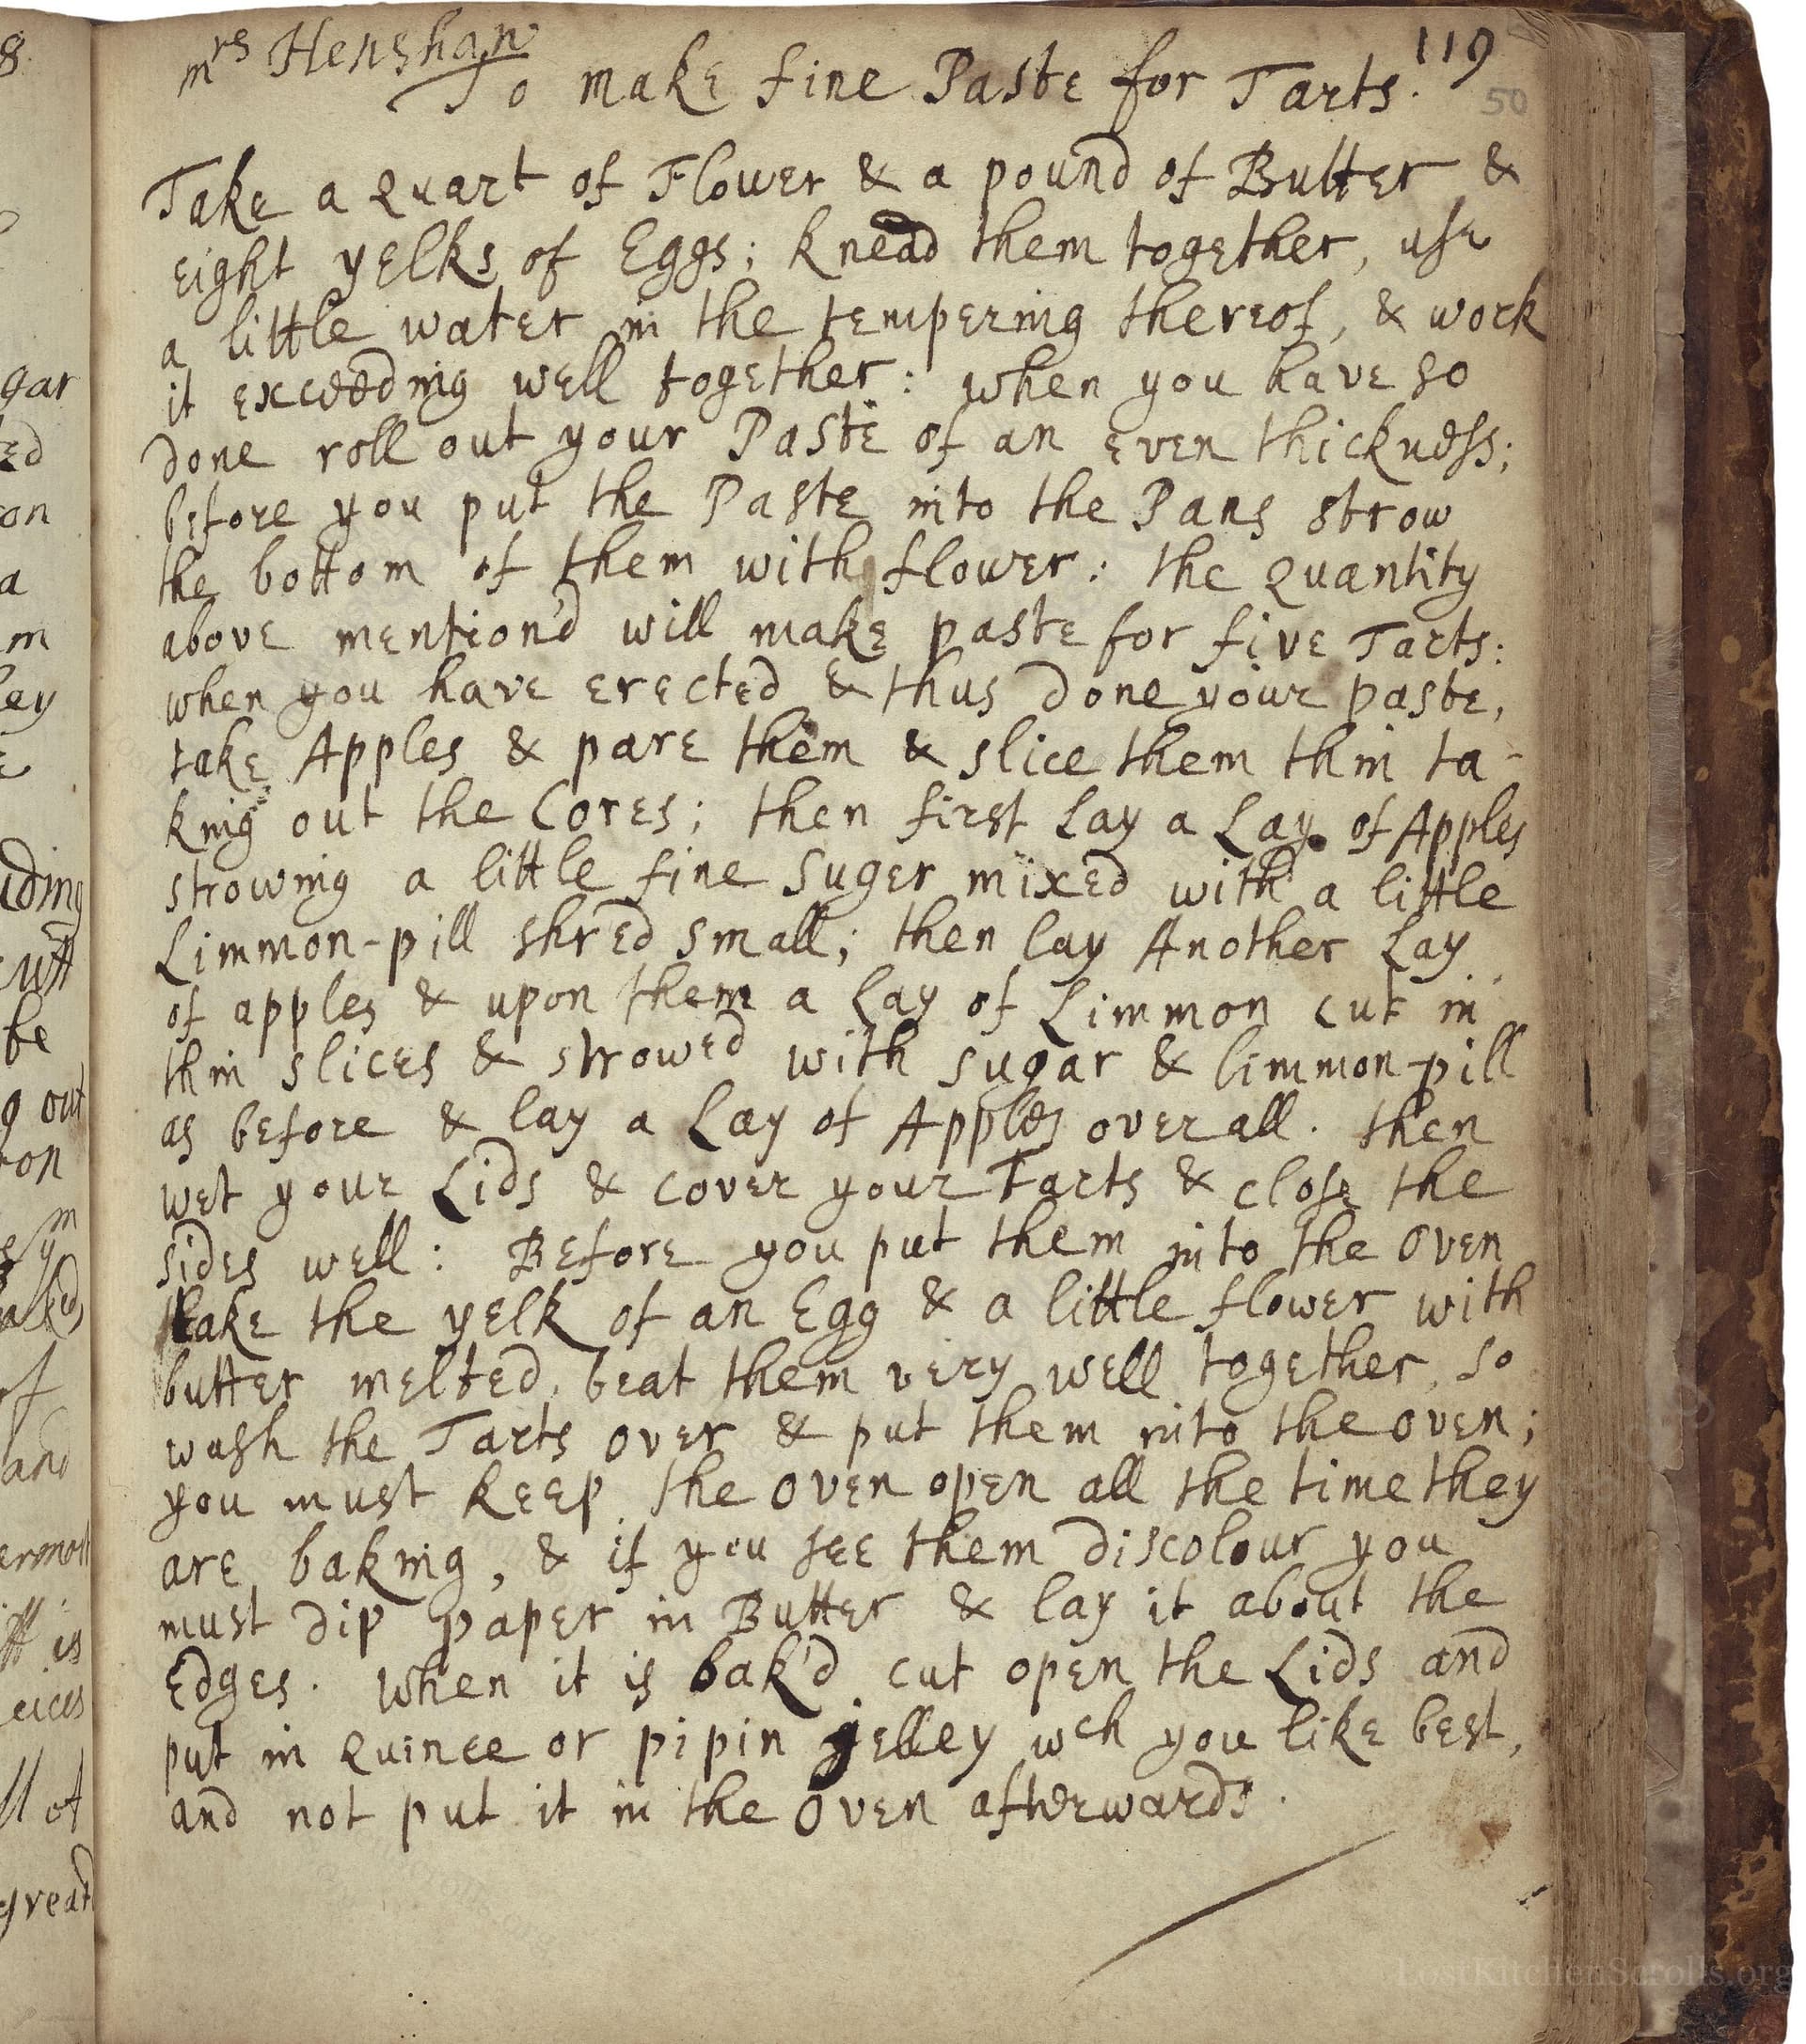 mrs Henshaw
119
To make fine Paste for Tarts.
50
Take a Quart of Flower & a pound of Butter &
eight yelks of Eggs; knead them together, use
a little water in the tempering thereof, & work
it exceeding well together: when you have so
done roll out your Paste of an even thickness;
before you put the Paste into the Pans strow
the bottom of them with flower: the Quantity
above mention'd will make paste for five Tarts:
when you have erected & thus done your paste,
take Apples & pare them & slice them thin ta-
king out the Cores; then first Lay a Lay of Apples
strowing a little fine Suger mixed with a little
Limmon-pill shred small; then lay Another Lay
of apples & upon them a Lay of Limmon cut in
thin slices & strowed with sugar & limmon-pill
as before & lay a Lay of Apples over all. then
wet your Lids & cover your Tarts & close the
sides well: Before you put them into the Oven
take the yelk of an Egg & a little flower with
butter melted, beat them very well together, so
wash the Tarts over & put them into the oven;
you must keep the oven open all the time they
are baking, & if you see them discolour you
must dip paper in Butter & lay it about the
Edges. When it is bak'd cut open the Lids and
put in Quince or pipin jelley wch you like best,
and not put it in the Oven afterwards.
8
gar
on
a
m
be
of
and
great
LostKitchenScrolls.org